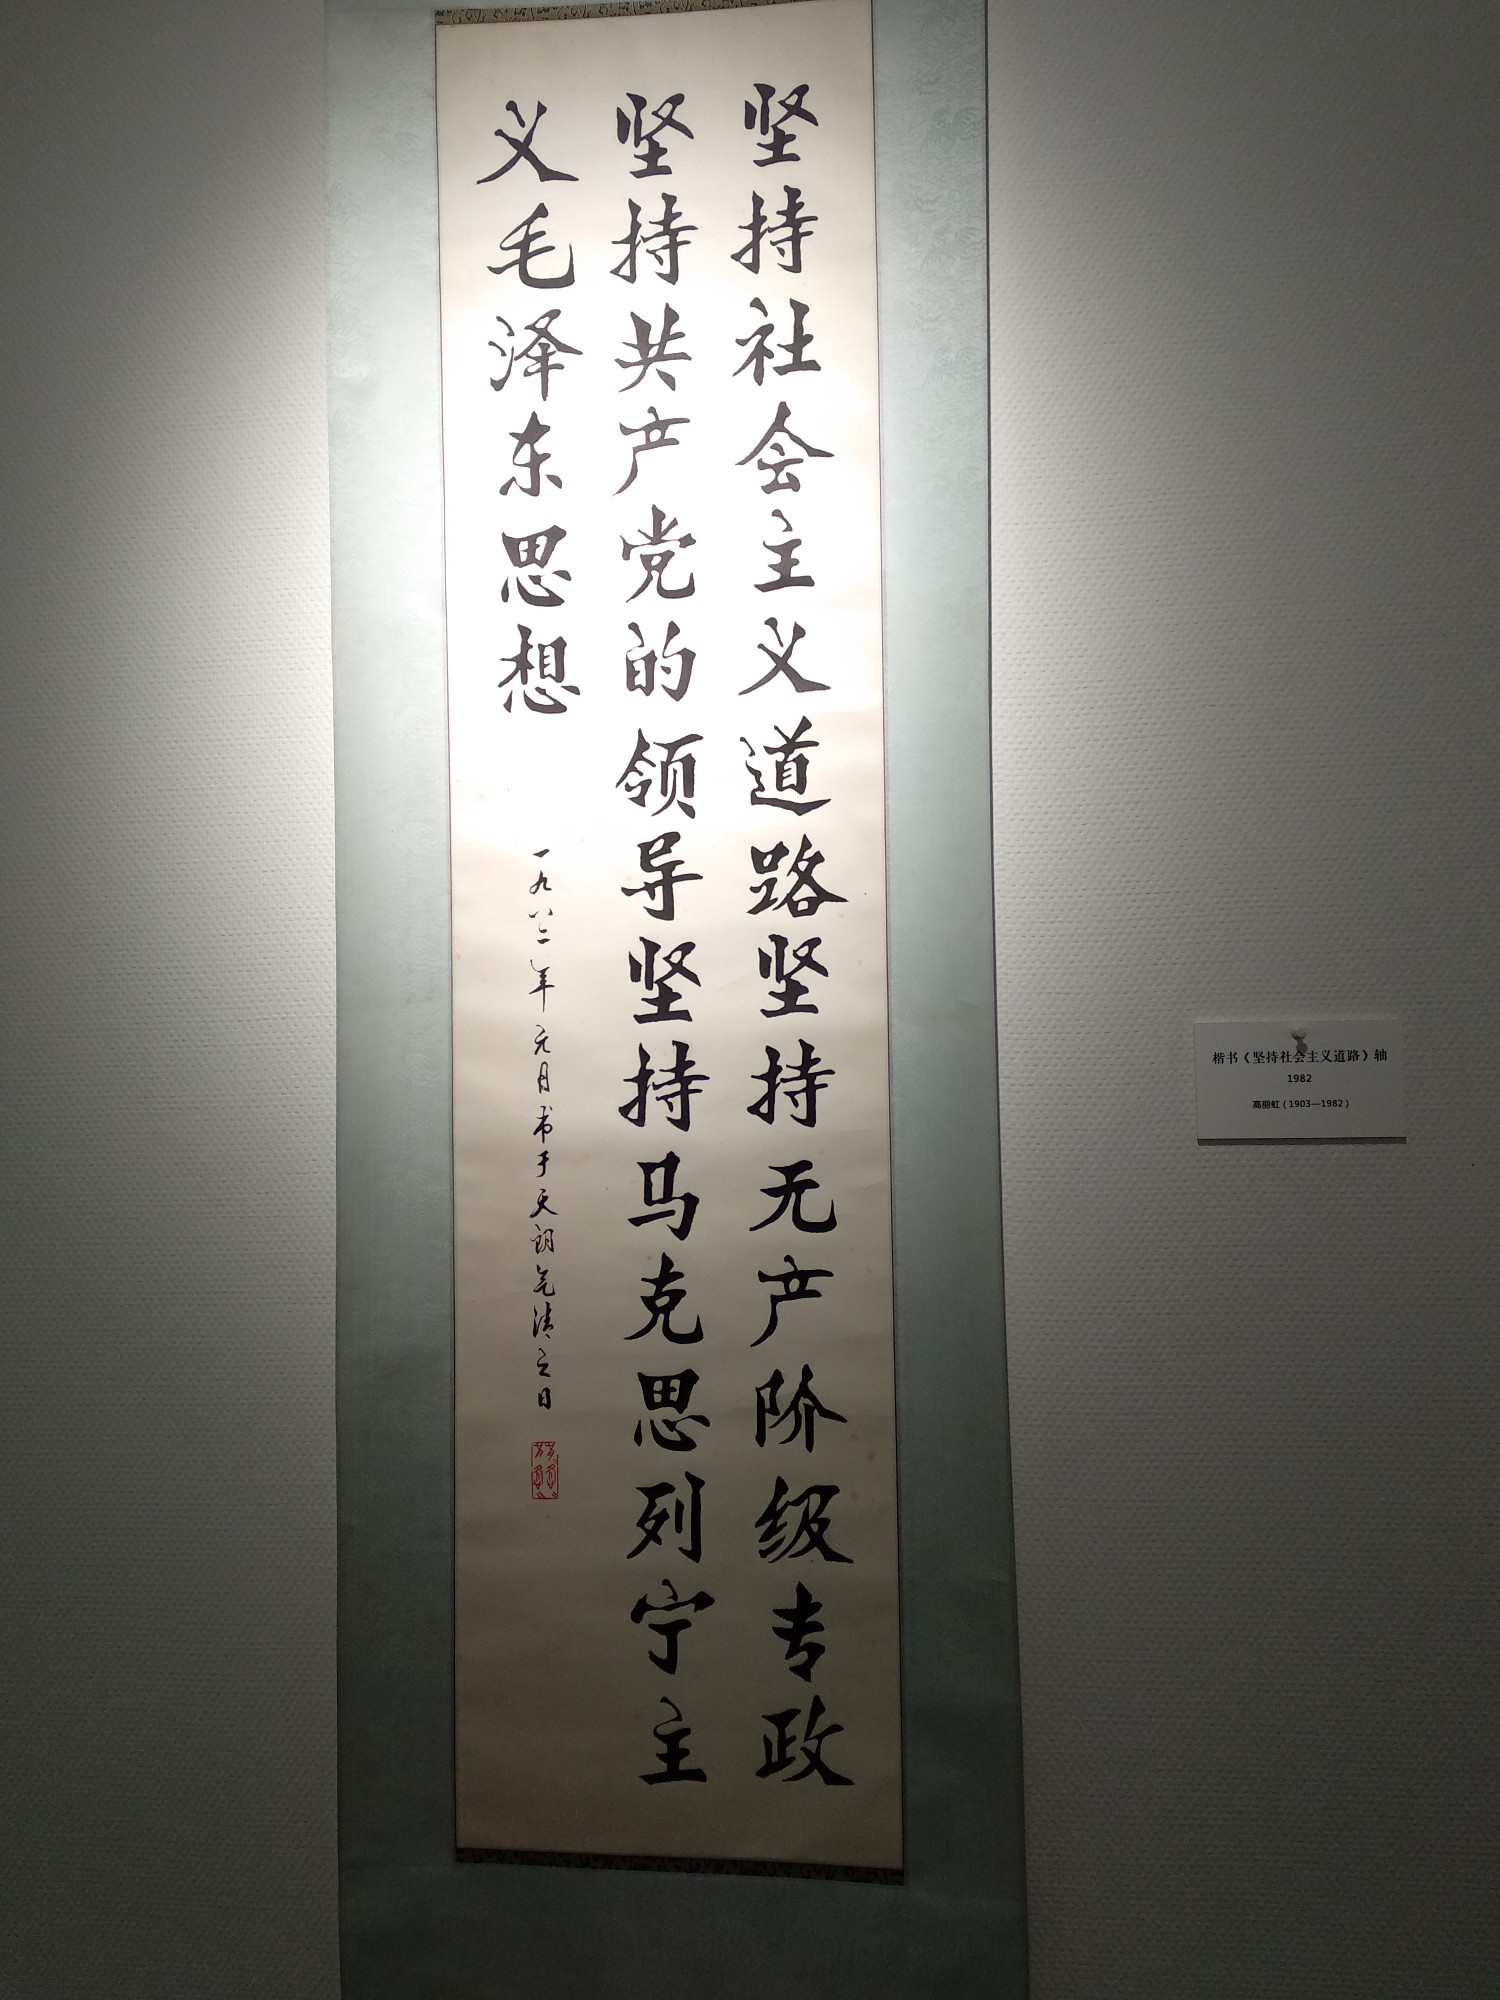 坚持社会主义道路坚持无产阶级专政
坚持共产党的领导坚持马克思列宁主
义毛泽东思想
一九八二年元月书于天朗气清之日
楷书《坚持社会主义道路》轴
1982
高丽虹（1903—1982）